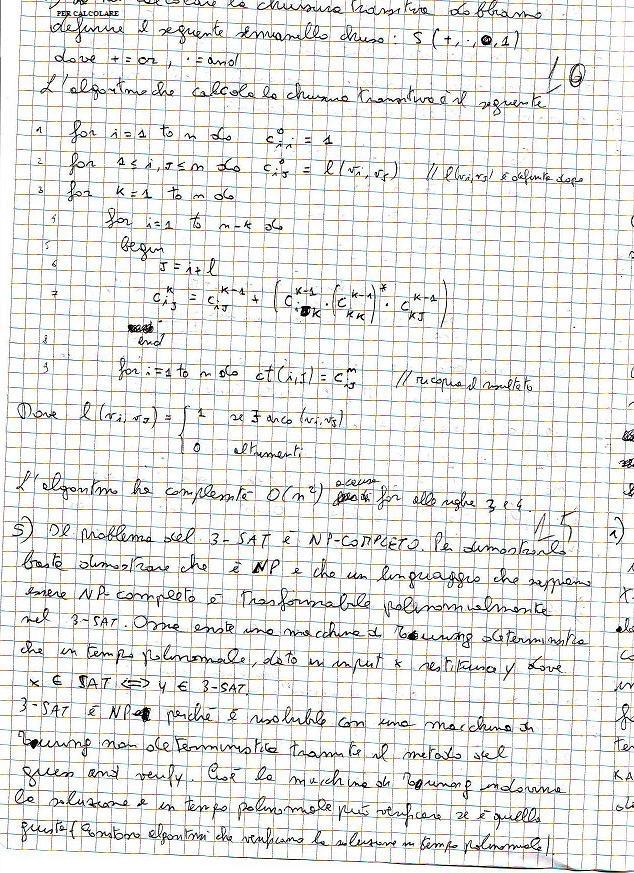 calcolare la chiusura transitiva dobbiamo
PER CALCOLARE
definire il seguente semianello chiuso: S(+,·,0,1)
dove += or , · = and
10
L'algoritmo che calcola la chiusura transitiva è il seguente
1 for i=1 to n do c⁰ᵢᵢ = 1
2 for 1≤i,J≤n do c⁰ᵢJ = l(vi,vJ) // l(vi,vJ) è definita dopo
3 for K=1 to n do
4 for i=1 to n-k do
5 begin
6 J=i+l
7 c^K_iJ = c^K-1_iJ + (c^K-1_iK · (c^K-1_KK)* · c^K-1_KJ)
8 end
9 for i=1 to n do ct(i,J) = c^n_iJ // ricopia il risultato
Dove l(vi,vJ) = { 1 se ∃ arco (vi,vJ)
0 altrimenti
L'algoritmo ha complessità O(n²) a causa for alle righe 3 e 4.
15
5) Il problema del 3-SAT è NP-COMPLETO. Per dimostrarlo
basta dimostrare che è NP e che un linguaggio che sappiamo
essere NP-completo è trasformabile polinomialmente
nel 3-SAT. Ossia esiste una macchina di Touring deterministica
che in tempo polinomiale, dato in input x restituisca y dove
x ∈ SAT ⟺ y ∈ 3-SAT.
3-SAT è NP perché è risolubile con una macchina di
Touring non deterministica tramite il metodo del
guess and verify. Cioè la macchina di Touring indovina
la soluzione e in tempo polinomiale può verificare se è quella
giusta (esistono algoritmi che verificano la soluzione in tempo polinomiale)